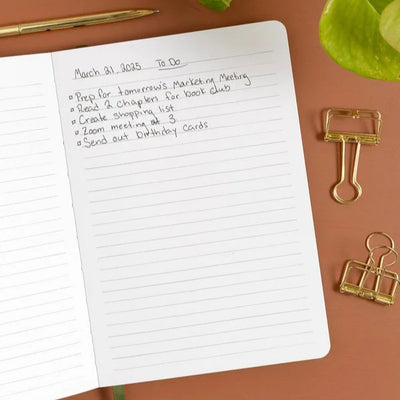 March 21, 2025 To Do
Prep for tomorrow's Marketing Meeting
Read 2 chapters for book club
Create shopping list
Zoom meeting at 3
Send out birthday cards